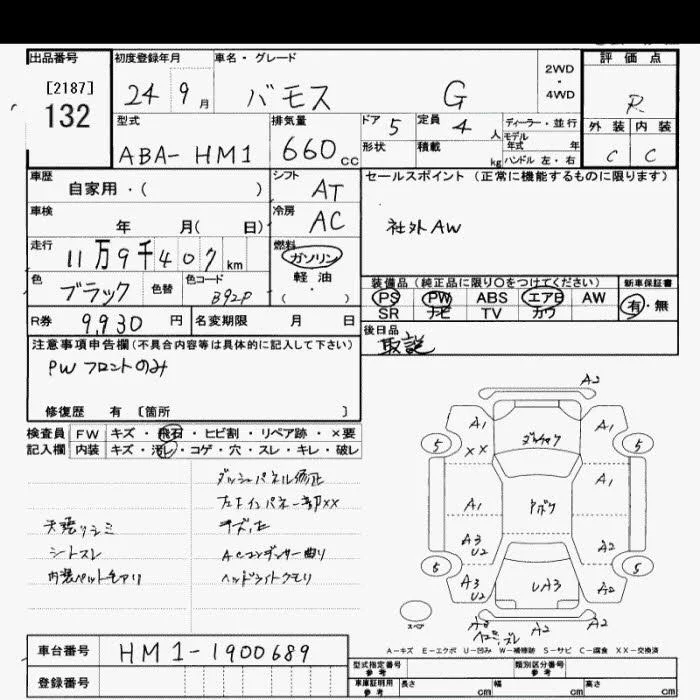 出品番号
[2187]
132
初度登録年月
24 9月
車名・グレード
バモス G
2WD
・
4WD
評価点
R
外装 内装
C C
型式
ABA-HM1
排気量
660cc
ドア 5
定員 4人
形状
積載 kg
ディーラー・並行
モデル
年式 年
ハンドル 左・右
車歴
自家用・( )
シフト
AT
セールスポイント (正常に機能するものに限ります)
社外AW
車検
年 月( 日)
冷房
AC
走行
11万9千407km
燃料
ガソリン
軽油
( ・ )
色
ブラック
色替
色コード
B92P
装備品 (純正品に限り〇をつけてください)
PS PW ABS エアB AW
SR ナビ TV カワ
新車保証書
有・無
R券
9,930円
名変期限 月 日
後日品
取説
注意事項申告欄(不具合内容等は具体的に記入して下さい)
PWフロントのみ
修復歴 有 〔箇所 〕
検査員 FW キズ・飛石・ヒビ割・リペア跡・×要
記入欄 内装 キズ・汚レ・コゲ・穴・スレ・キレ・破レ
シートスレ
ACコンデンサー曲り
ヘッドライトクモリ
A2
A1
XX
A1
5
5
A1
A1
A3
U2
A2
5
5
A3
U2
UA3
A2
スペア
A2
A2
A-キズ E-エクボ U-凹み W-補修跡 S-サビ C-腐食 XX-交換済
車台番号
HM1-1900689
登録番号
型式指定番号
参考
類別区分番号
参考
車庫証明用
参考
長さ cm
幅 cm
高さ cm